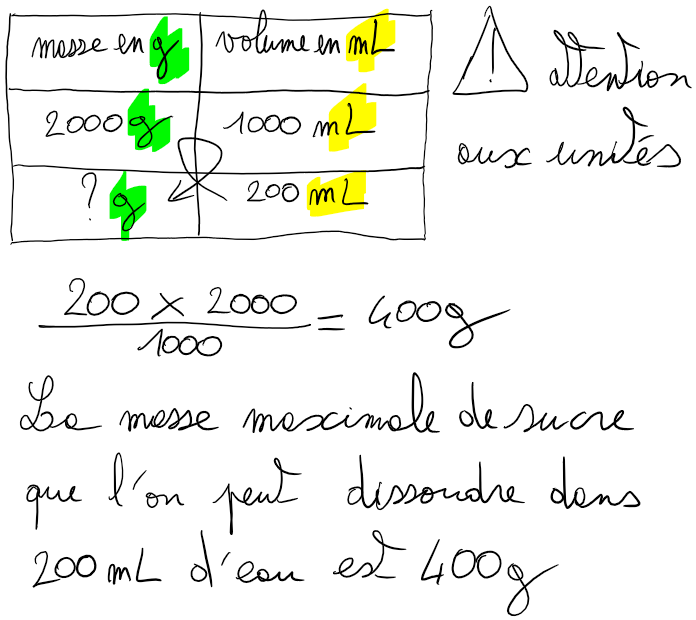 masse en g volume en mL
2000 g 1000 mL
? g 200 mL
! attention
aux unités
200 × 2000
1000
= 400g
La masse maximale de sucre
que l'on peut dissoudre dans
200 mL d'eau est 400g